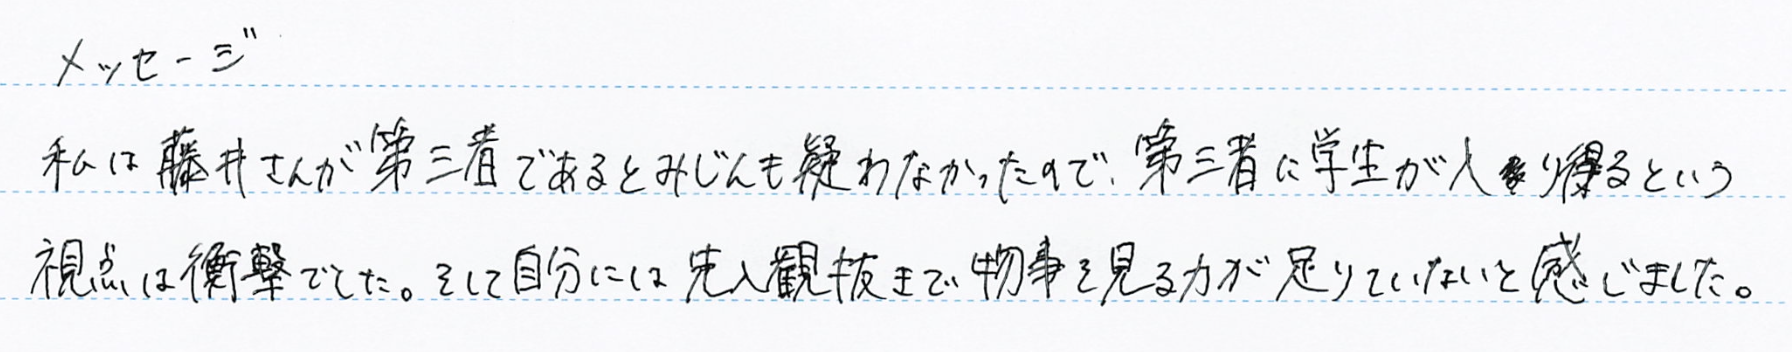 メッセージ
私は藤井さんが第三者であるとみじんも疑わなかったので、第三者に学生が入り得るという
視点は衝撃でした。そして自分には先入観抜きで物事を見る力が足りていないと感じました。